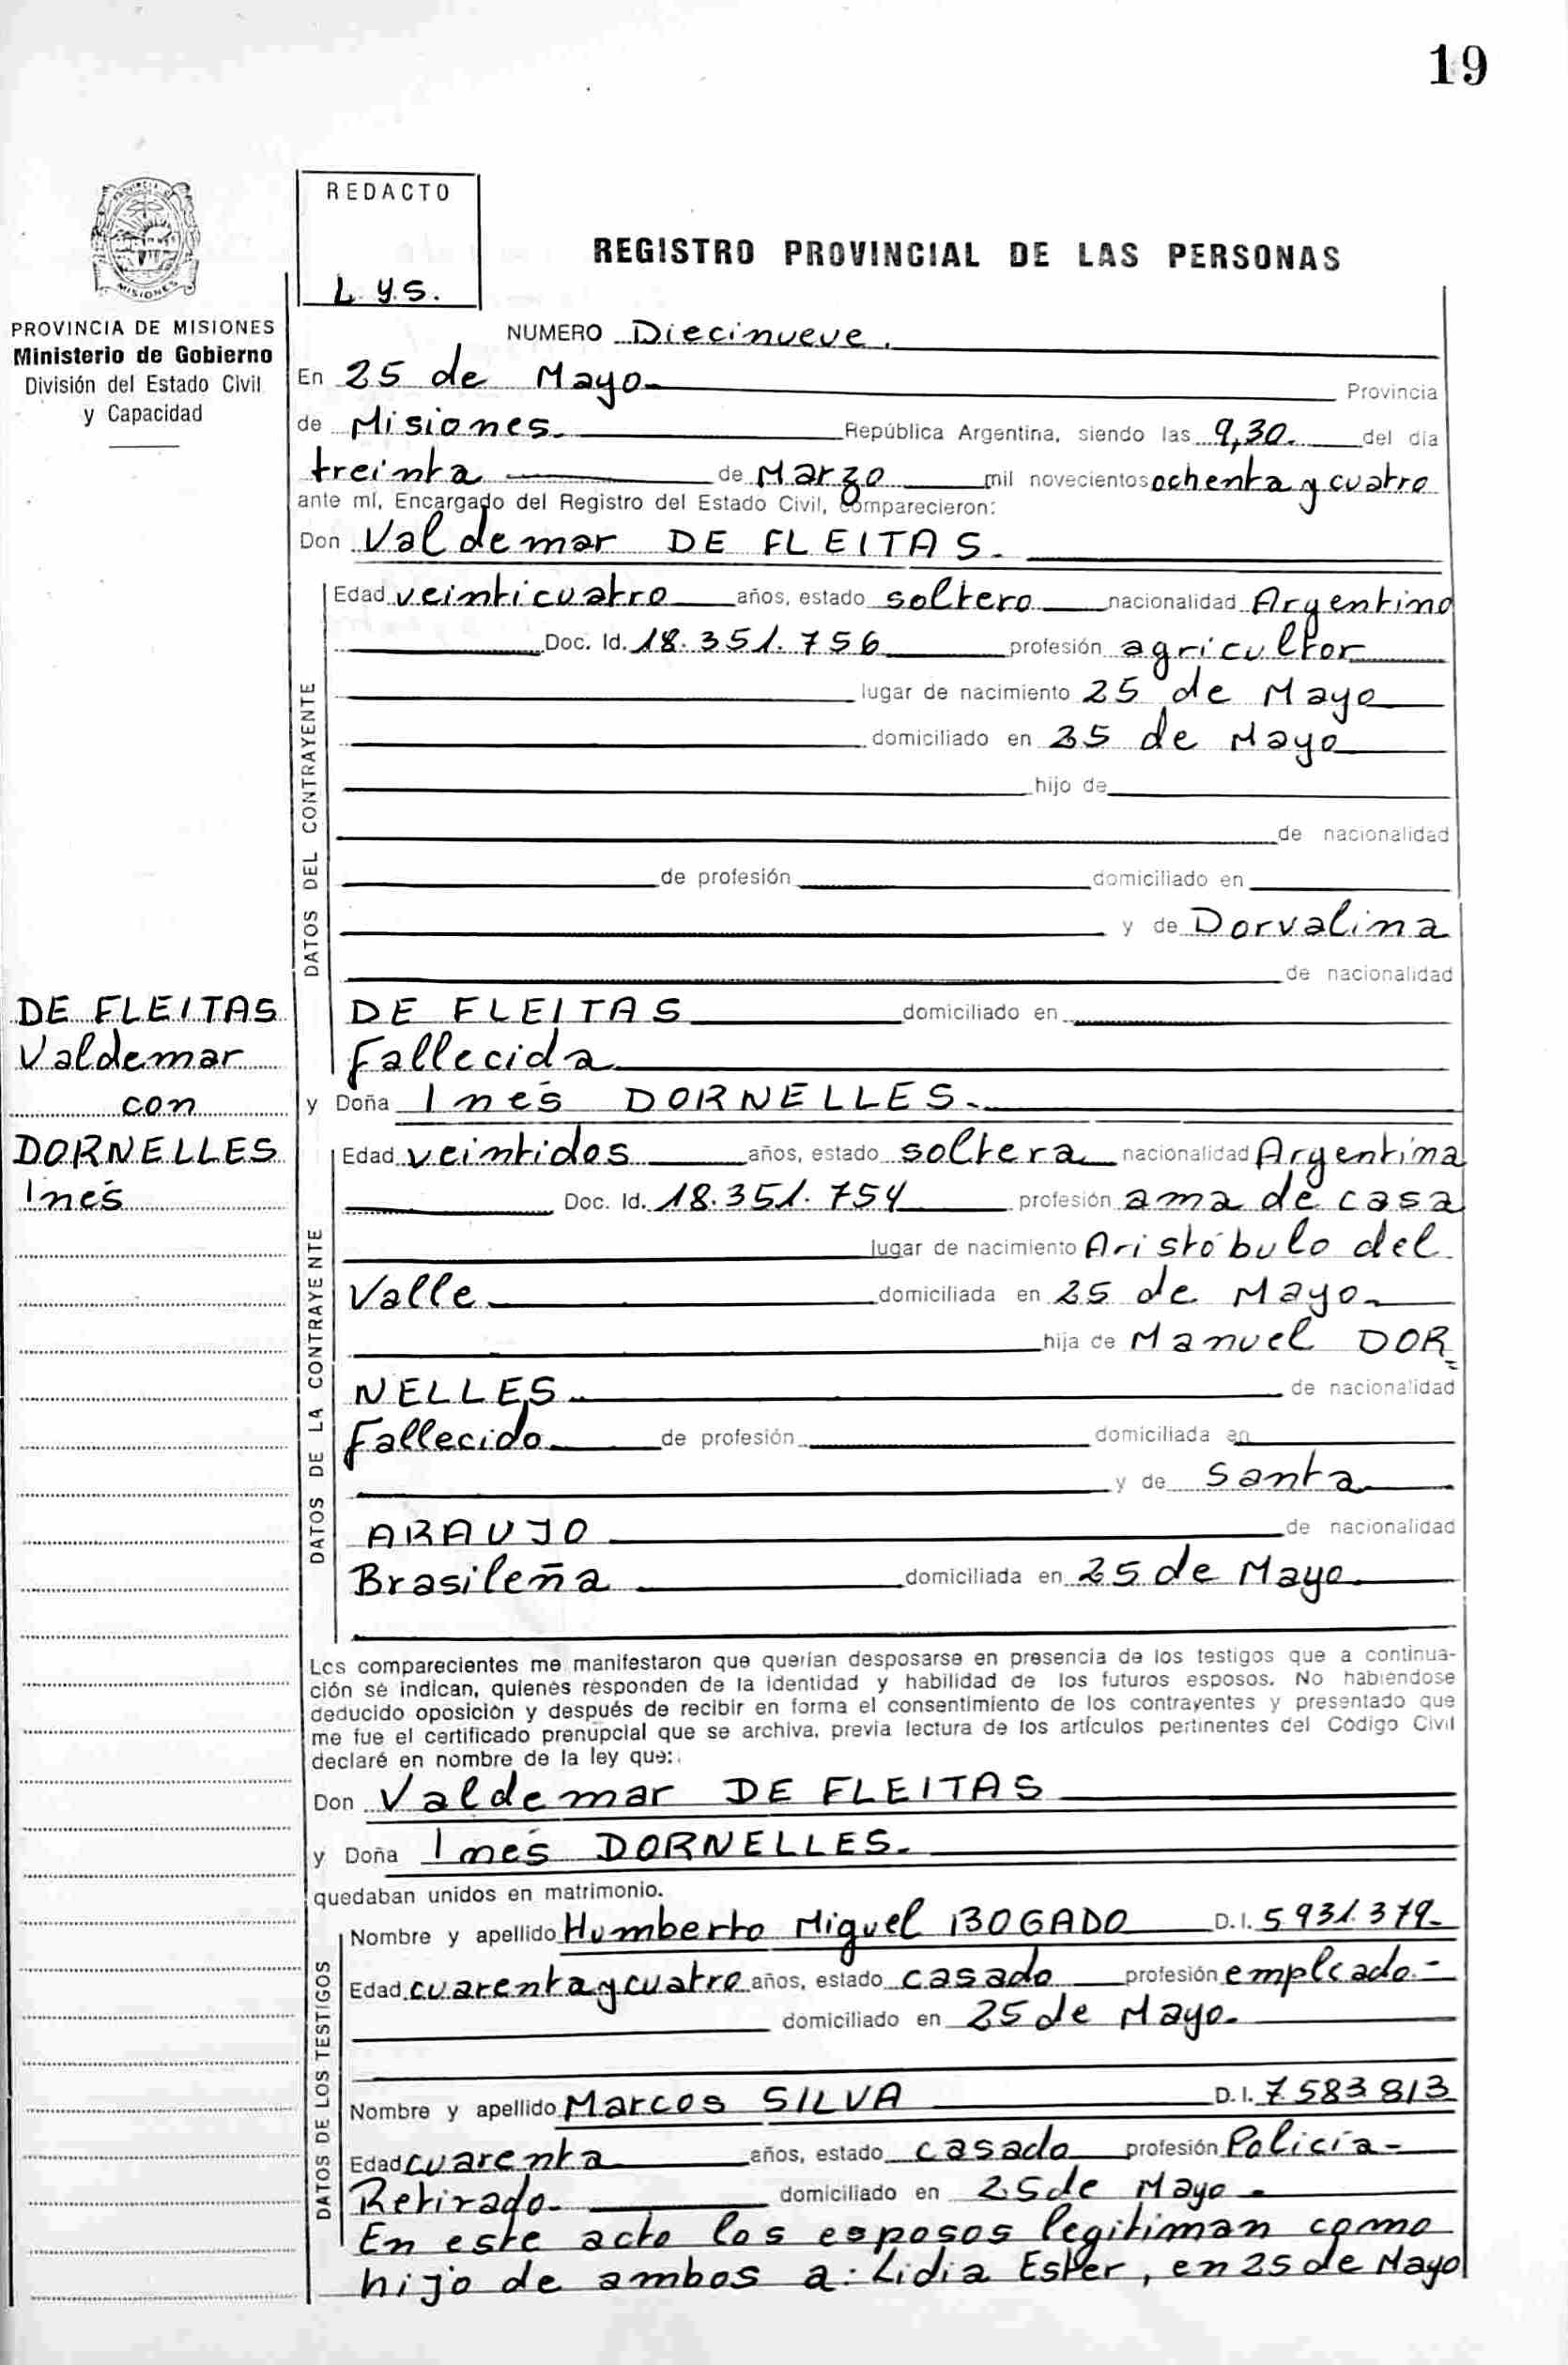 19
REDACTO
L. y.s.
REGISTRO PROVINCIAL DE LAS PERSONAS
PROVINCIA DE MISIONES
Ministerio de Gobierno
División del Estado Civil
y Capacidad
NUMERO Diecinueve.
En 25 de Mayo Provincia
de Misiones. República Argentina, siendo las 9,30. del día
treinta de Marzo mil novecientos ochenta y cuatro
ante mí, Encargado del Registro del Estado Civil, comparecieron:
Don Valdemar DE FLEITAS.
DATOS DEL CONTRAYENTE
Edad veinticuatro años, estado soltero nacionalidad Argentino
Doc. Id. 18.351.756 profesión agricultor
lugar de nacimiento 25 de Mayo
domiciliado en 25 de Mayo
hijo de
de nacionalidad
de profesión domiciliado en
y de Dorvalina
de nacionalidad
DE FLEITAS domiciliado en
Fallecida
DE FLEITAS
Valdemar
con
DORNELLES
Inés
y Doña Inés DORNELLES.
DATOS DE LA CONTRAYENTE
Edad veintidos años, estado soltera nacionalidad Argentina
Doc. Id. 18.351.754 profesión ama de casa
lugar de nacimiento Aristóbulo del
Valle domiciliada en 25 de Mayo
hija de Manuel DOR
NELLES de nacionalidad
Fallecido de profesión domiciliada en
y de Santa
ARAUJO de nacionalidad
Brasileña domiciliada en 25 de Mayo
Los comparecientes me manifestaron que querían desposarse en presencia de los testigos que a continua-
ción se indican, quienes responden de la identidad y habilidad de los futuros esposos. No habiendose
deducido oposición y después de recibir en forma el consentimiento de los contrayentes y presentado que
me fue el certificado prenupcial que se archiva, previa lectura de los artículos pertinentes del Código Civil
declaré en nombre de la ley que:
Don Valdemar DE FLEITAS
y Doña Inés DORNELLES.
quedaban unidos en matrimonio.
DATOS DE LOS TESTIGOS
Nombre y apellido Humberto Miguel BOGADO D.I. 5931.379
Edad cuarenta y cuatro años, estado casado profesión empleado.-
domiciliado en 25 de Mayo.
Nombre y apellido Marcos SILVA D.I. 7.583 813
Edad cuarenta años, estado casado profesión Policía-
Retirado domiciliado en 25 de Mayo
En este acto los esposos legitiman como
hijo de ambos a: Lidia Ester, en 25 de Mayo